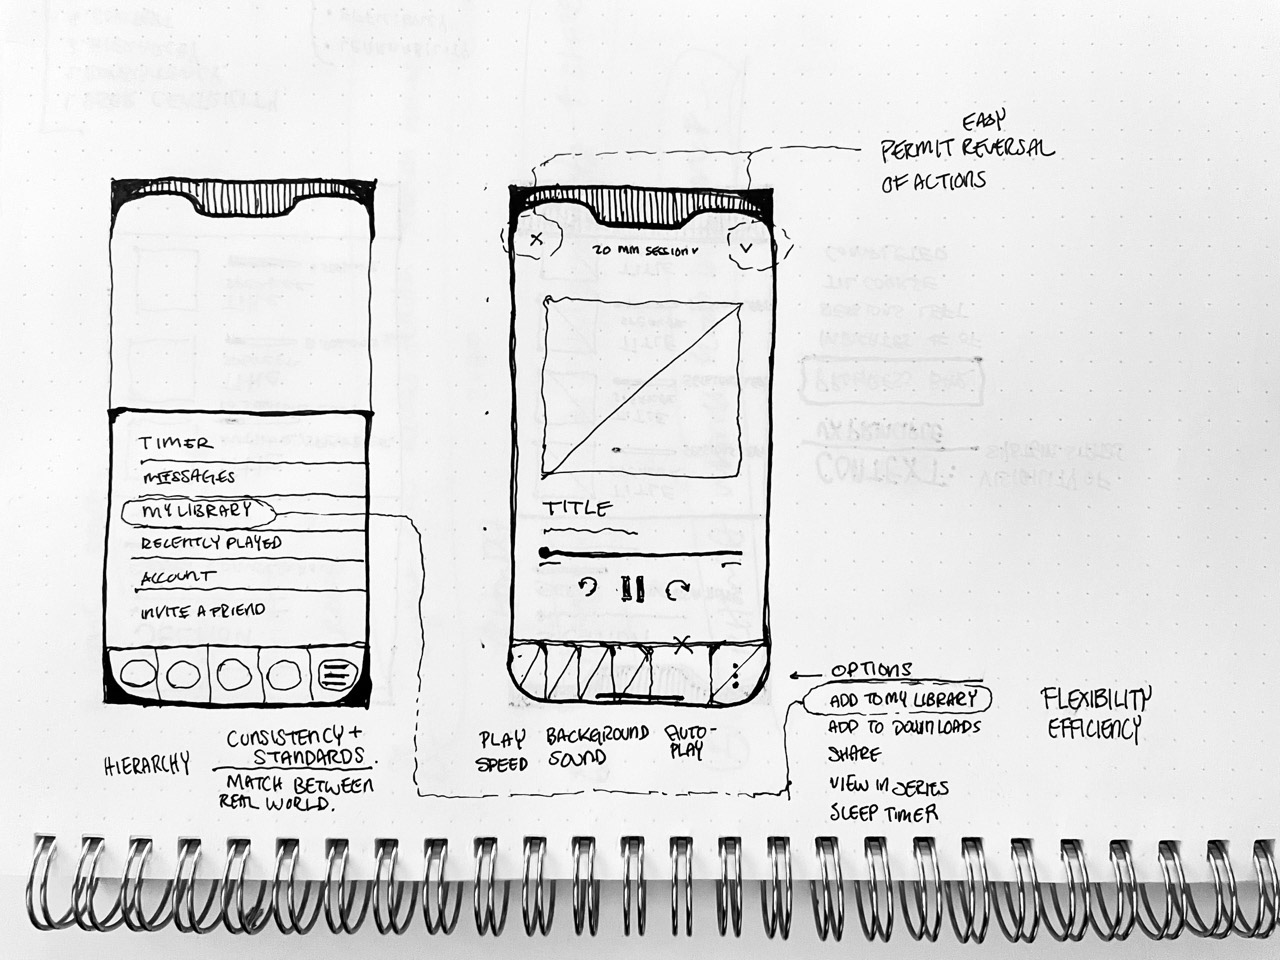 EASY
PERMIT REVERSAL
OF ACTIONS
TIMER
MESSAGES
MY LIBRARY
RECENTLY PLAYED
ACCOUNT
INVITE A FRIEND
HIERARCHY
CONSISTENCY +
STANDARDS.
MATCH BETWEEN
REAL WORLD.
X
20 MIN SESSION
TITLE
X
PLAY
SPEED
BACKGROUND
SOUND
AUTO-
PLAY
OPTIONS
ADD TO MY LIBRARY
ADD TO DOWNLOADS
SHARE
VIEW IN SERIES
SLEEP TIMER
FLEXIBILITY
EFFICIENCY